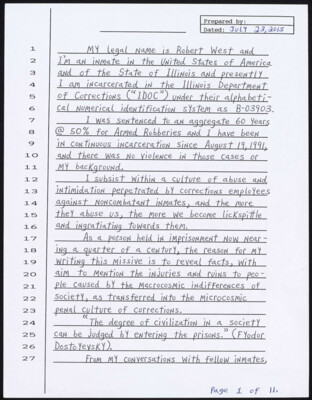 Prepared by:
Dated: JULY 23, 2015
1 MY legal name is Robert West and
2 I'm an inmate in the United States of America
3 and of the State of Illinois and presently
4 I am incarcerated in the Illinois Department
5 of Corrections ("IDOC") under their alphabeti-
6 cal numerical identification system as B-03903.
7 I was sentenced to an aggregate 60 Years
8 @ 50% for Armed Robberies and I have been
9 in continuous incarceration since August 19, 1991,
10 and there was no violence in those cases or
11 MY background.
12 I subsist within a culture of abuse and
13 intimidation perpetrated by corrections employees
14 against noncombatant inmates, and the more
15 they abuse us, the more we become lickspittle
16 and ingratiating towards them.
17 As a person held in imprisonment now near-
18 ing a quarter of a century, the reason for my
19 writing this missive is to reveal facts, with
20 aim to mention the injuries and ruins to peo-
21 ple caused by the macrocosmic indifferences of
22 society, as transferred into the microcosmic
23 penal culture of corrections.
24 "The degree of civilization in a society
25 can be judged by entering the prisons." (Fyodor
26 Dostoyevsky).
27 From my conversations with fellow inmates,
Page 1 of 11.